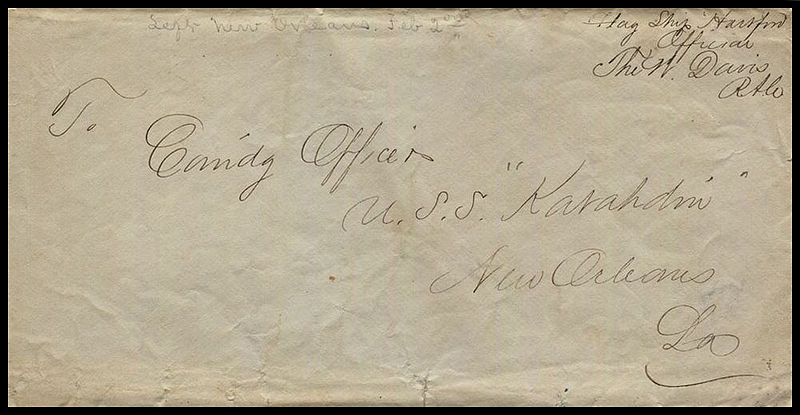 Left New Orleans. Feb 2
Flag Ship Hartford
Official
Theo W. Davis
To
Com'dg Officer
U. S. S. "Katahdin"
New Orleans
La